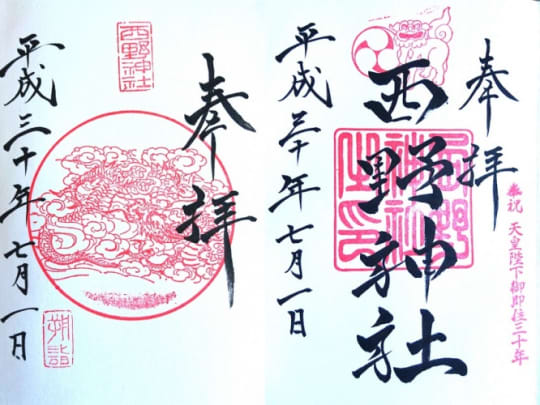 奉拝
西野神社
平成三十年七月一日
朔詣
奉拝
奉祝 天皇陛下御即位三十年
西野神社
西野神社之印
平成三十年七月一日